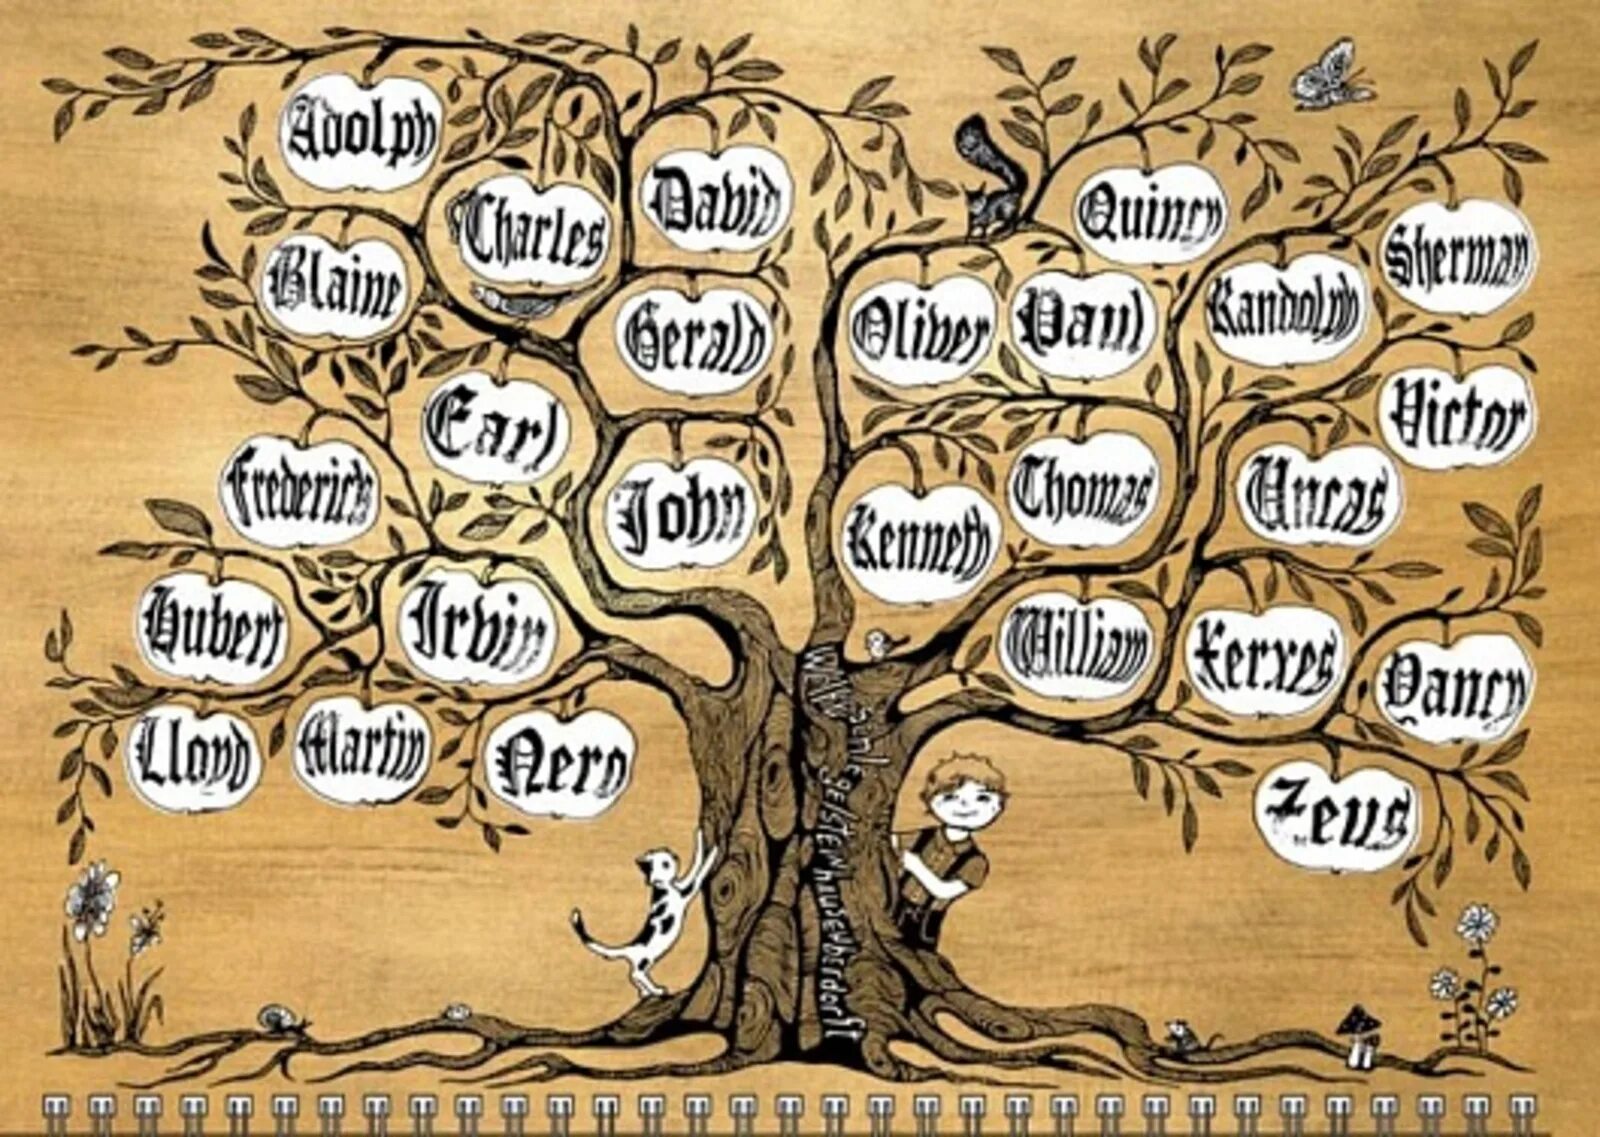 Adolph
Charles
David
Blaine
Gerald
Earl
Frederick
John
Hubert
Irvin
Lloyd
Martin
Nero
Quincy
Sherman
Oliver
Paul
Randolph
Victor
Thomas
Uncas
Kenneth
William
Xerxes
Yancy
Zeus